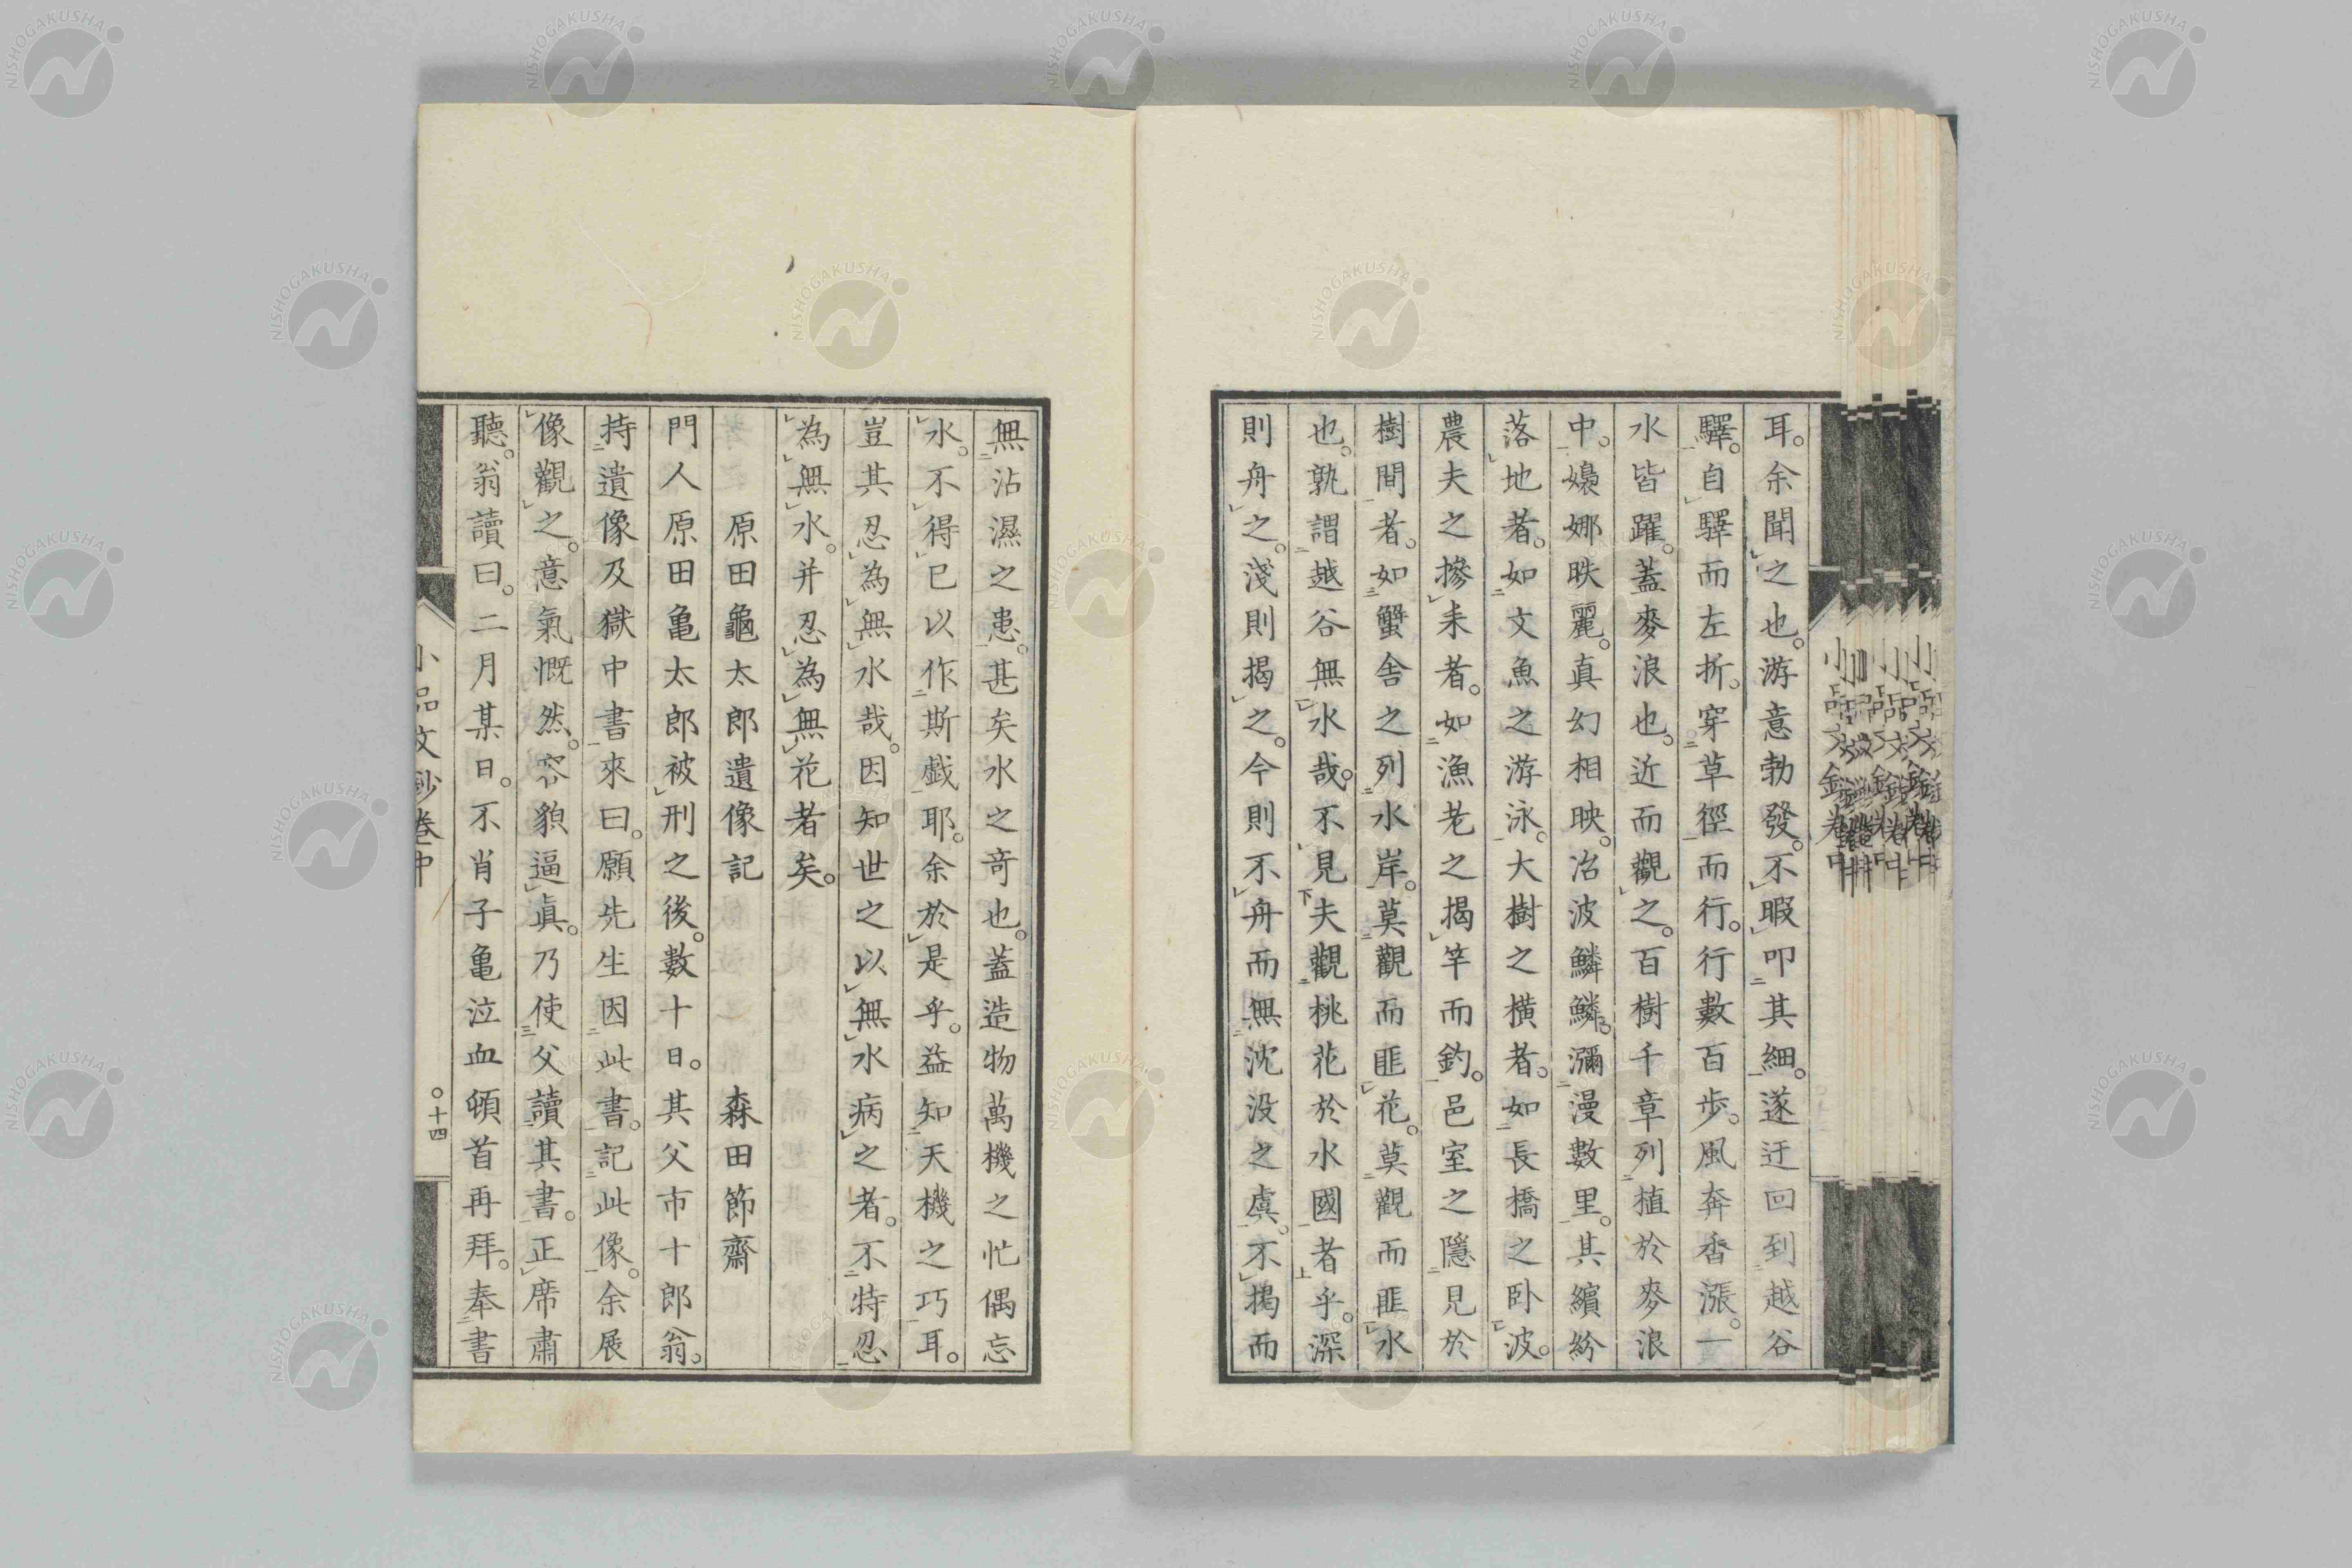 耳。余聞之也。游意勃發。不暇叩其細。遂迂回到越谷
驛。自驛而左折。穿草徑而行。行數百步。風奔香漲。一
水皆躍。蓋麥浪也。近而觀之。百樹千章列植於麥浪
中。嬝娜昳麗。真幻相映。冶波鱗鱗。瀰漫數里。其繽紛
落地者。如文魚之游泳。大樹之橫者。如長橋之臥波。
農夫之摻耒者。如漁老之揭竿而釣。邑室之隱見於
樹間者。如蟹舍之列水岸。莫觀而匪花。莫觀而匪水
也。孰謂越谷無水哉。不見夫觀桃花於水國者乎。深
則舟之。淺則揭之。今則不舟而無沈沒之虞。不揭而
無沾濕之患。甚矣水之奇也。蓋造物萬機之忙偶忘
水。不得已以作斯戲耶。余於是乎。益知天機之巧耳。
豈其忍為無水哉。因知世之以無水病之者。不特忍
為無水。并忍為無花者矣。
原田龜太郎遺像記 森田節齋
門人原田亀太郎被刑之後。數十日。其父市十郎翁。
持遺像及獄中書來曰。願先生因此書。記此像。余展
像觀之。意氣慨然。容貌逼眞。乃使父讀其書。正席肅
聽。翁讀曰。二月某日。不肖子亀泣血頓首再拜。奉書
小品文鈔卷中
〇十四
NISHOGAKUSHA